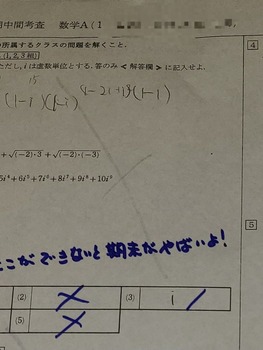 中間考査 数学A(1
所属するクラスの問題を解くこと.
(1,2,3組)
ただし,iは虚数単位とする.答のみ<解答欄>に記入せよ.
4
15
+√(-2)·3+√(-2)·(-3)
5i⁴+6i⁵+7i⁶+8i⁷+9i⁸+10i⁹
5
ここができないと期末がやばいよ!
(2) (3) i
(5)